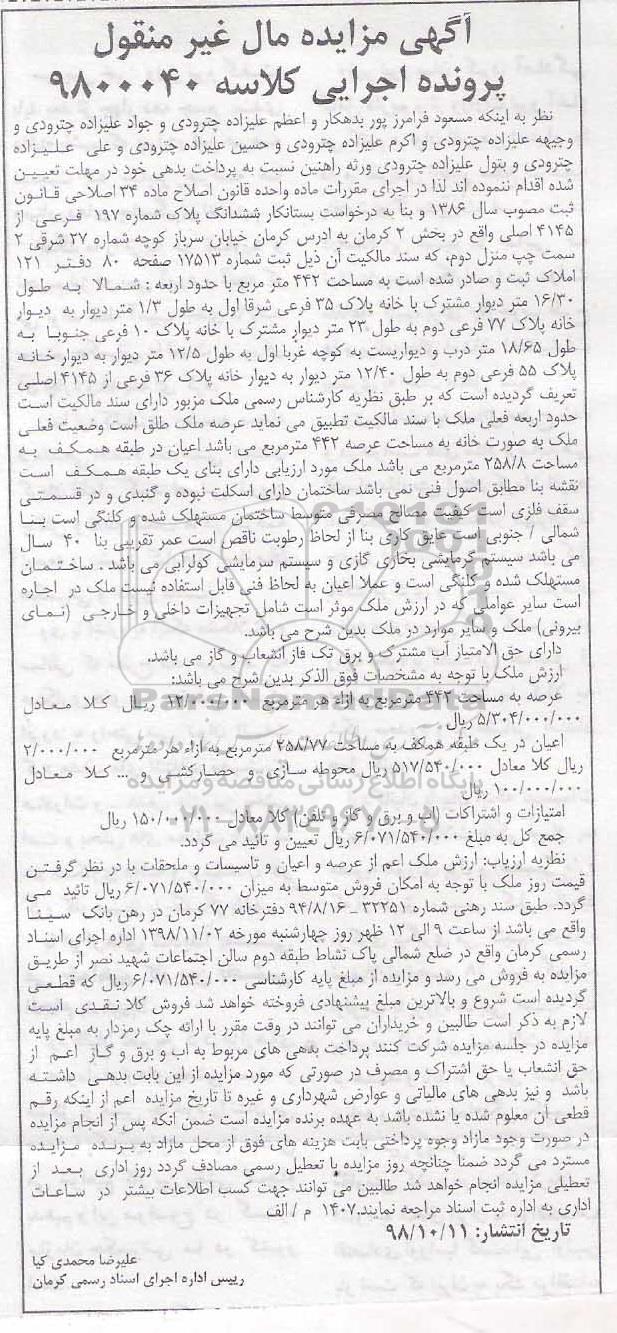 آگهی مزایده مال غیر منقول
پرونده اجرایی کلاسه ۹۸۰۰۰۴۰
نظر به اینکه مسعود فرامرز پور بدهکار و اعظم علیزاده چترودی و جواد علیزاده چترودی و
وجیهه علیزاده چترودی و اکرم علیزاده چترودی و حسین علیزاده چترودی و علی علیزاده
چترودی و بتول علیزاده چترودی ورثه راهنین نسبت به پرداخت بدهی خود در مهلت تعیین
شده اقدام ننموده اند لذا در اجرای مقررات ماده واحده قانون اصلاح ماده ۳۴ اصلاحی قانون
ثبت مصوب سال ۱۳۸۶ و بنا به درخواست بستانکار ششدانگ پلاک شماره ۱۹۷ فرعی از
۴۱۴۵ اصلی واقع در بخش ۲ کرمان به ادرس کرمان خیابان سرباز کوچه شماره ۲۷ شرقی ۲
سمت چپ منزل دوم، که سند مالکیت آن ذیل ثبت شماره ۱۷۵۱۳ صفحه ۸۰ دفتر ۱۲۱
املاک ثبت و صادر شده است به مساحت ۴۴۲ متر مربع با حدود اربعه : شمالا به طول
۱۶/۳۰ متر دیوار مشترک با خانه پلاک ۳۵ فرعی شرقا اول به طول ۱/۳ متر دیوار به دیوار
خانه پلاک ۷۷ فرعی دوم به طول ۲۳ متر دیوار مشترک با خانه پلاک ۱۰ فرعی جنوبا به
طول ۱۸/۶۵ متر درب و دیواریست به کوچه غربا اول به طول ۱۲/۵ متر دیوار به دیوار خانه
پلاک ۵۵ فرعی دوم به طول ۱۲/۴۰ متر دیوار به دیوار خانه پلاک ۳۶ فرعی از ۴۱۴۵ اصلی
تعریف گردیده است که بر طبق نظریه کارشناس رسمی ملک مزبور دارای سند مالکیت است
حدود اربعه فعلی ملک با سند مالکیت تطبیق می نماید عرصه ملک طلق است وضعیت فعلی
ملک به صورت خانه به مساحت عرصه ۴۴۲ مترمربع می باشد اعیان در طبقه همکف به
مساحت ۲۵۸/۸ مترمربع می باشد ملک مورد ارزیابی دارای بنای یک طبقه همکف است
نقشه بنا مطابق اصول فنی نمی باشد ساختمان دارای اسکلت نبوده و گنبدی و در قسمتی
سقف فلزی است کیفیت مصالح مصرفی متوسط ساختمان مستهلک شده و کلنگی است بنا
شمالی / جنوبی است عایق کاری بنا از لحاظ رطوبت ناقص است عمر تقریبی بنا ۴۰ سال
می باشد سیستم گرمایشی بخاری گازی و سیستم سرمایشی کولرآبی می باشد . ساختمان
مستهلک شده و کلنگی است و عملا اعیان به لحاظ فنی قابل استفاده نیست ملک در اجاره
است سایر عواملی که در ارزش ملک موثر است شامل تجهیزات داخلی و خارجی (نمای
بیرونی) ملک و سایر موارد در ملک بدین شرح می باشد.
دارای حق الامتیاز آب مشترک و برق تک فاز انشعاب و گاز می باشد.
ارزش ملک با توجه به مشخصات فوق الذکر بدین شرح می باشد:
عرصه به مساحت ۴۴۲ مترمربع به ازاء هر مترمربع ۱۲/۰۰۰/۰۰۰ ریال کلا معادل
۵/۳۰۴/۰۰۰/۰۰۰ ریال
اعیان در یک طبقه همکف به مساحت ۲۵۸/۷۷ مترمربع به ازاء هر مترمربع ۲/۰۰۰/۰۰۰
ریال کلا معادل ۵۱۷/۵۴۰/۰۰۰ ریال محوطه سازی و حصارکشی و ... کلا معادل
۱۰۰/۰۰۰/۰۰۰ ریال
امتیازات و اشتراکات (اب و برق و گاز و تلفن) کلا معادل ۱۵۰/۰۰۰/۰۰۰ ریال
جمع کل به مبلغ ۶/۰۷۱/۵۴۰/۰۰۰ ریال تعیین و تائید می گردد.
نظریه ارزیاب: ارزش ملک اعم از عرصه و اعیان و تاسیسات و ملحقات با در نظر گرفتن
قیمت روز ملک با توجه به امکان فروش متوسط به میزان ۶/۰۷۱/۵۴۰/۰۰۰ ریال تائید می
گردد. طبق سند رهنی شماره ۳۲۲۵۱ _ ۹۴/۸/۱۶ دفترخانه ۷۷ کرمان در رهن بانک سینا
واقع می باشد از ساعت ۹ الی ۱۲ ظهر روز چهارشنبه مورخه ۱۳۹۸/۱۱/۰۲ اداره اجرای اسناد
رسمی کرمان واقع در ضلع شمالی پاک نشاط طبقه دوم سالن اجتماعات شهید نصر از طریق
مزایده به فروش می رسد و مزایده از مبلغ پایه کارشناسی ۶/۰۷۱/۵۴۰/۰۰۰ ریال که قطعی
گردیده است شروع و بالاترین مبلغ پیشنهادی فروخته خواهد شد فروش کلا نقدی است
لازم به ذکر است طالبین و خریداران می توانند در وقت مقرر با ارائه چک رمزدار به مبلغ پایه
مزایده در جلسه مزایده شرکت کنند پرداخت بدهی های مربوط به اب و برق و گاز اعم از
حق انشعاب یا حق اشتراک و مصرف در صورتی که مورد مزایده از این بابت بدهی داشته
باشد و نیز بدهی های مالیاتی و عوارض شهرداری و غیره تا تاریخ مزایده اعم از اینکه رقم
قطعی ان معلوم شده یا نشده باشد به عهده برنده مزایده است ضمن انکه پس از انجام مزایده
در صورت وجود مازاد وجوه پرداختی بابت هزینه های فوق از محل مازاد به برنده مزایده
مسترد می گردد ضمنا چنانچه روز مزایده با تعطیل رسمی مصادف گردد روز اداری بعد از
تعطیلی مزایده انجام خواهد شد طالبین می توانند جهت کسب اطلاعات بیشتر در ساعات
اداری به اداره ثبت اسناد مراجعه نمایند.۱۴۰۷ م / الف
تاریخ انتشار: ۹۸/۱۰/۱۱
علیرضا محمدی کیا
رییس اداره اجرای اسناد رسمی کرمان
ParsNamadData
پایگاه اطلاع رسانی مناقصه و مزایده